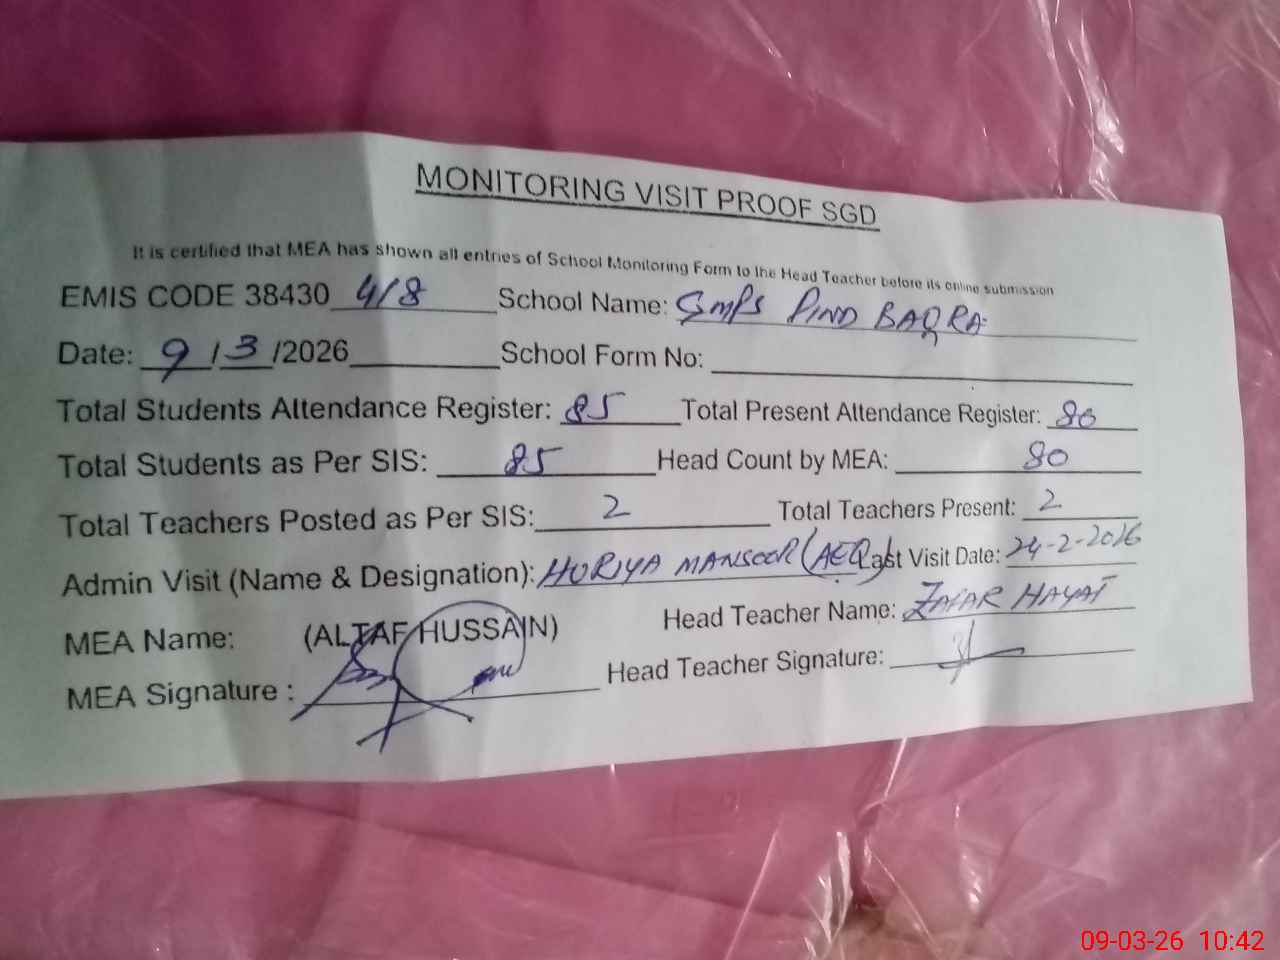 MONITORING VISIT PROOF SGD
It is certified that MEA has shown all entries of School Monitoring Form to the Head Teacher before its online submission
EMIS CODE 38430 418 School Name: GMPS PIND BAQRA
Date: 9/3/2026 School Form No:
Total Students Attendance Register: 85 Total Present Attendance Register: 80
Total Students as Per SIS: 85 Head Count by MEA: 80
Total Teachers Posted as Per SIS: 2 Total Teachers Present: 2
Admin Visit (Name & Designation): HURIYA MANSOOR (AEO) Last Visit Date: 24-2-2026
MEA Name: (ALTAF HUSSAIN) Head Teacher Name: ZAFAR HAYAT
MEA Signature : Head Teacher Signature:
09-03-26 10:42